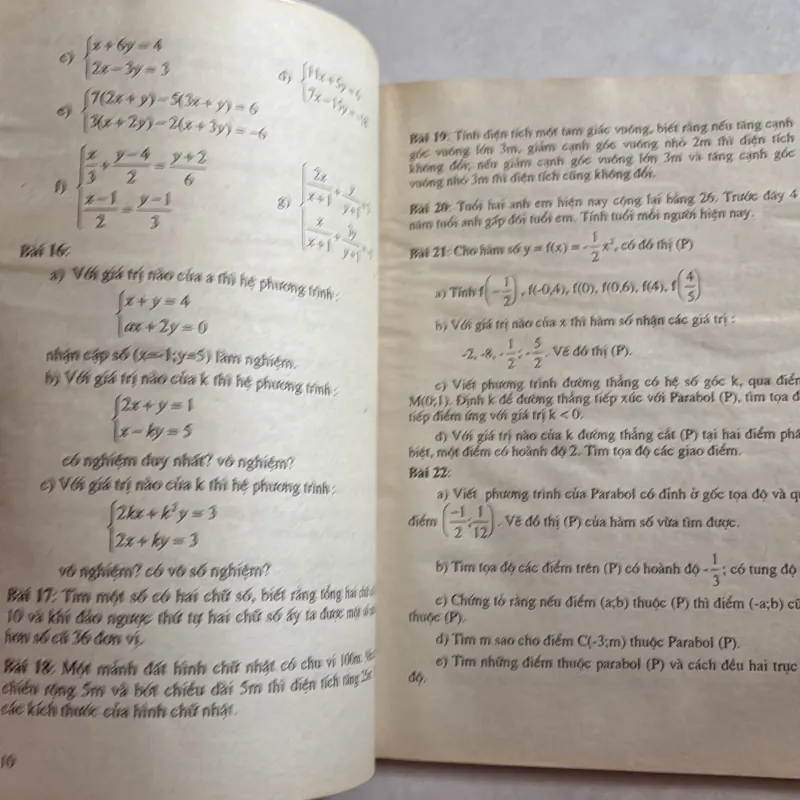 c) {x + 6y = 4
{2x − 3y = 3
d) {11x + 5y =
{7x − 15y =
e) {7(2x + y) − 5(3x + y) = 6
{3(x + 2y) − 2(x + 3y) = −6
f) {x/3 + (y − 4)/2 = (y + 2)/6
{(x − 1)/2 = (y − 1)/3
g) {2x/(x + 1) + y/(y + 1)
{x/(x + 1) + 3y/(y + 1)
Bài 16:
a) Với giá trị nào của a thì hệ phương trình :
{x + y = 4
{ax + 2y = 0
nhận cặp số (x=-1;y=5) làm nghiệm.
b) Với giá trị nào của k thì hệ phương trình :
{2x + y = 1
{x − ky = 5
có nghiệm duy nhất? vô nghiệm?
c) Với giá trị nào của k thì hệ phương trình :
{2kx + k²y = 3
{2x + ky = 3
vô nghiệm? có vô số nghiệm?
Bài 17: Tìm một số có hai chữ số, biết rằng tổng hai chữ số
10 và khi đảo ngược thứ tự hai chữ số ấy ta được một số
hơn số cũ 36 đơn vị.
Bài 18: Một mảnh đất hình chữ nhật có chu vi 100m.
chiều rộng 5m và bớt chiều dài 5m thì diện tích tăng
các kích thước của hình chữ nhật.
10
Bài 19: Tính diện tích một tam giác vuông, biết rằng nếu tăng cạnh
góc vuông lớn 3m, giảm cạnh góc vuông nhỏ 2m thì diện tích
không đổi, nếu giảm cạnh góc vuông lớn 3m và tăng cạnh góc
vuông nhỏ 3m thì diện tích cũng không đổi.
Bài 20: Tuổi hai anh em hiện nay cộng lại bằng 26. Trước đây 4
năm tuổi anh gấp đôi tuổi em. Tính tuổi mỗi người hiện nay.
Bài 21: Cho hàm số y = f(x) = -1/2 x², có đồ thị (P)
a) Tính f(-1/2), f(-0,4), f(0), f(0,6), f(4), f(4/5)
b) Với giá trị nào của x thì hàm số nhận các giá trị :
-2, -8, -1/2; -5/2. Vẽ đồ thị (P).
c) Viết phương trình đường thẳng có hệ số góc k, qua điểm
M(0;1). Định k để đường thẳng tiếp xúc với Parabol (P), tìm tọa đ
tiếp điểm ứng với giá trị k < 0.
d) Với giá trị nào của k đường thẳng cắt (P) tại hai điểm phâ
biệt, một điểm có hoành độ 2. Tìm tọa độ các giao điểm.
Bài 22:
a) Viết phương trình của Parabol có đỉnh ở gốc tọa độ và qu
điểm (-1/2; 1/12). Vẽ đồ thị (P) của hàm số vừa tìm được.
b) Tìm tọa độ các điểm trên (P) có hoành độ -1/3; có tung độ
c) Chứng tỏ rằng nếu điểm (a;b) thuộc (P) thì điểm (-a;b) cũ
thuộc (P).
d) Tìm m sao cho điểm C(-3;m) thuộc Parabol (P).
e) Tìm những điểm thuộc parabol (P) và cách đều hai trục
độ.